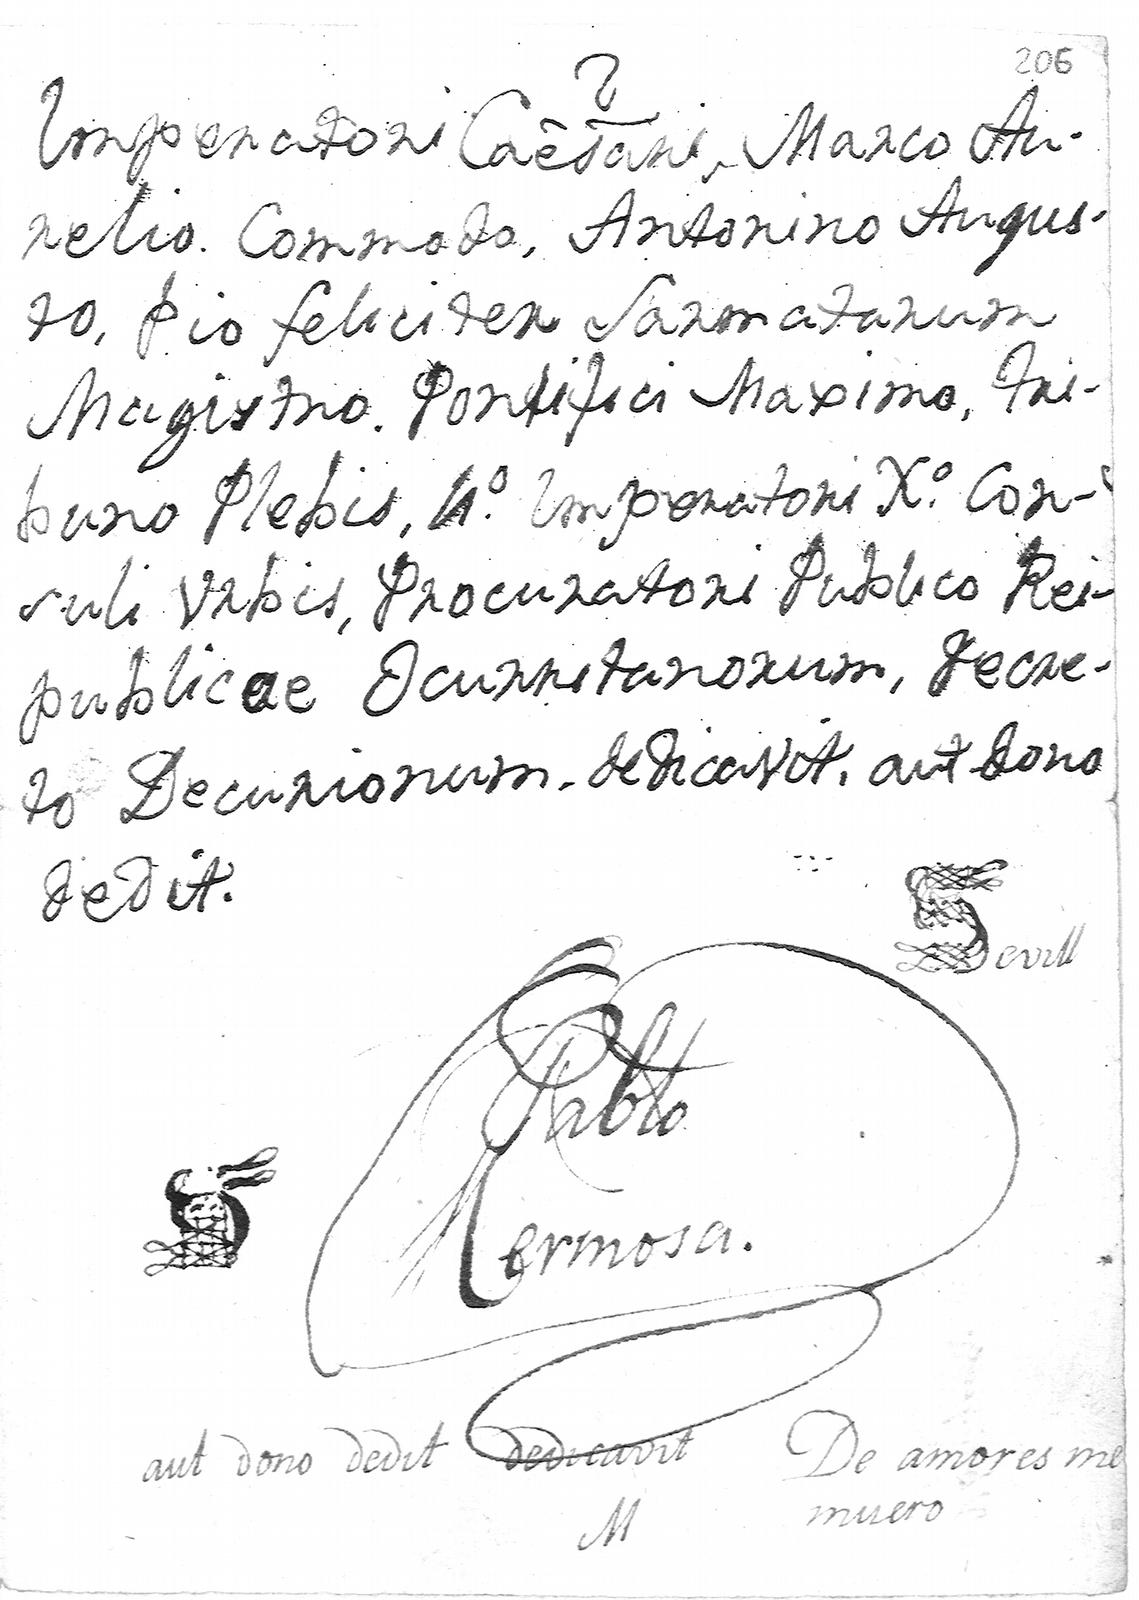 206
Imperatori Caesari, Marco Au-
relio. Commodo, Antonino Augus-
to, pio feliciter Sarmatarum
Magistro. Pontifici Maximo, Tri-
buno Plebis, 4º. Imperatori Xº. Con-
suli Vrbis, Procuratori Publico Rei-
publicae Ocurritanorum, decre-
to Decurionum. dedicavit. aut dono
dedit.
Sevill
Pablo
Hermosa.
aut dono dedit dedicavit De amores me
muero
M